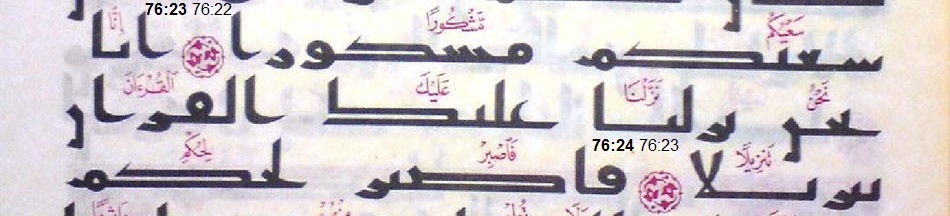 76:23 76:22
سَعْيُكُم مَّشْكُورًا إِنَّا
سعيكم مشكورا انا
نَحْنُ نَزَّلْنَا عَلَيْكَ ٱلْقُرْءَانَ
نحن نزلنا عليك القران
76:24 76:23
تَنزِيلًا فَٱصْبِرْ لِحُكْمِ
تنزيلا فاصبر لحكم